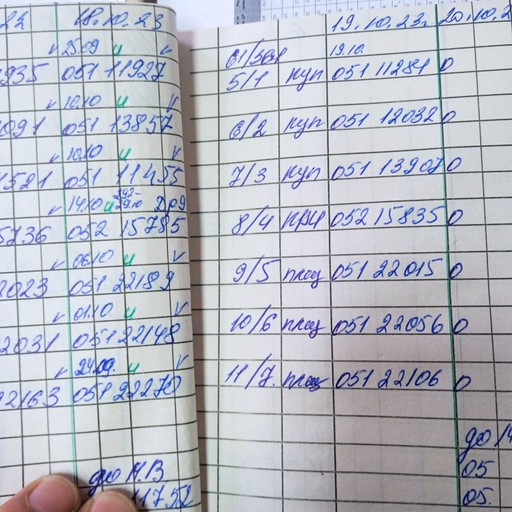 18.10.23
25.09 и v
935 051 11927
v 10.10 и v
091 051 13857
v 10.10 и v
1521 051 11455
v 14.10 и 209
5736 052 15785
v 06.10 и v
2023 051 22189
v 01.10 и v
2031 051 22148
v 24.09. и v
22163 051 22270
до М.В
11752
19.10.23. 20.10.2
19.10
5/1 куп 051 11281 0
6/2 куп 051 12032 0
7/3 куп 051 13907 0
8/4 052 15835 0
9/5 плац 051 22015 0
10/6 плац 051 22056 0
11/7. плац 051 22106 0
до
05
05.